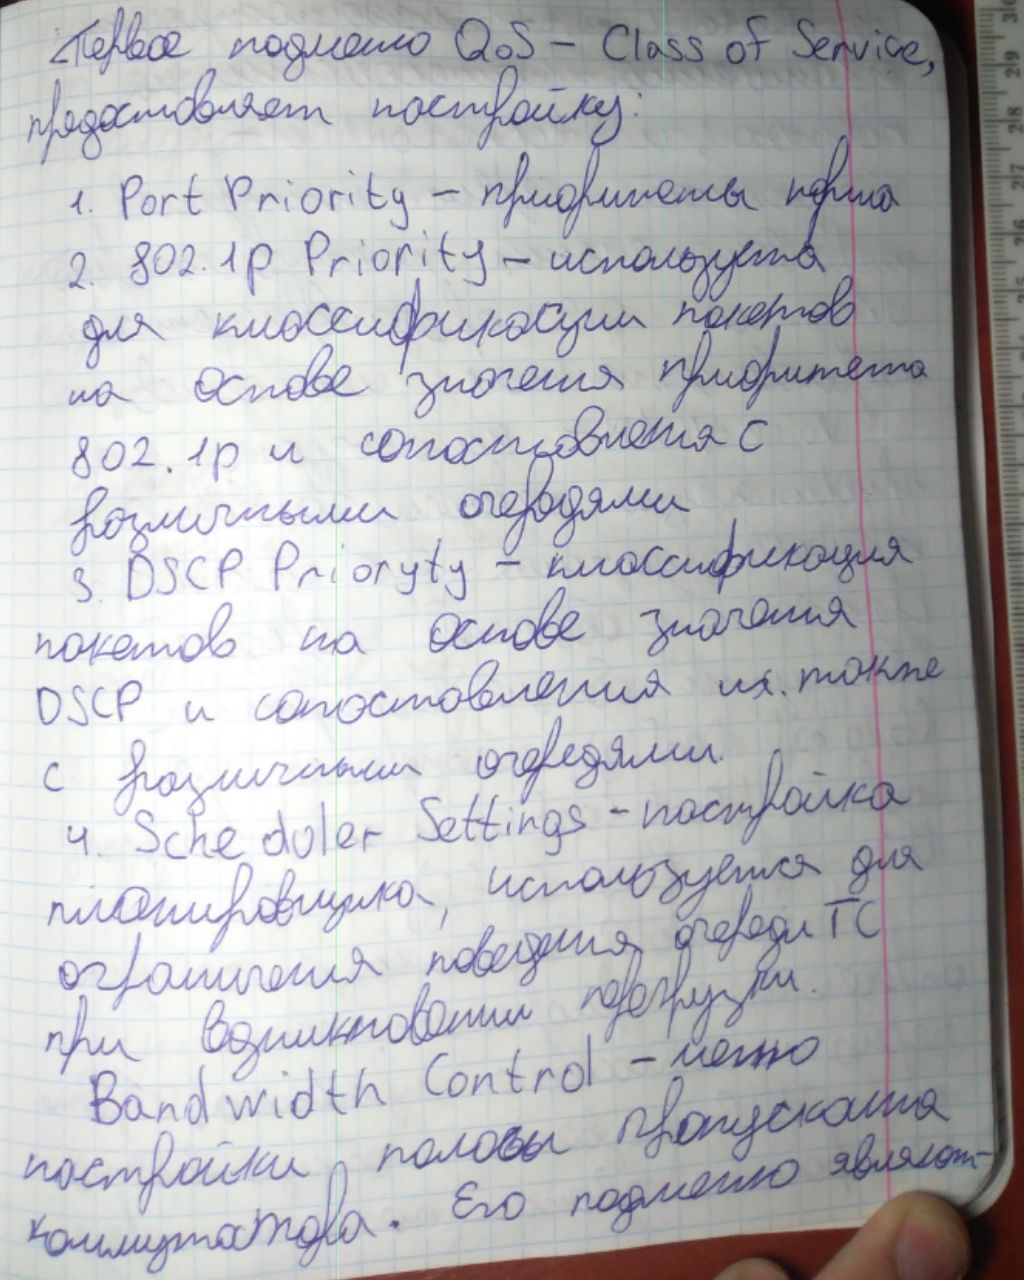 Первое подменю QoS – Class of Service,
предоставляет настройку:
1. Port Priority – приоритеты порта
2. 802.1p Priority – используета
для классификации пакетов
на основе значения приоритета
802.1p и сопоставления с
различными очередями
3. DSCP Prioryty – классификация
пакетов на основе значения
DSCP и сопоставления их также
с различными очередями.
4. Scheduler Settings – настройка
планировщика, используется для
ограничения поведения очереди TC
при возникновении перегрузки.
Bandwidth Control – меню
настройки полосы пропускания
коммутатора. Его подменю являют-